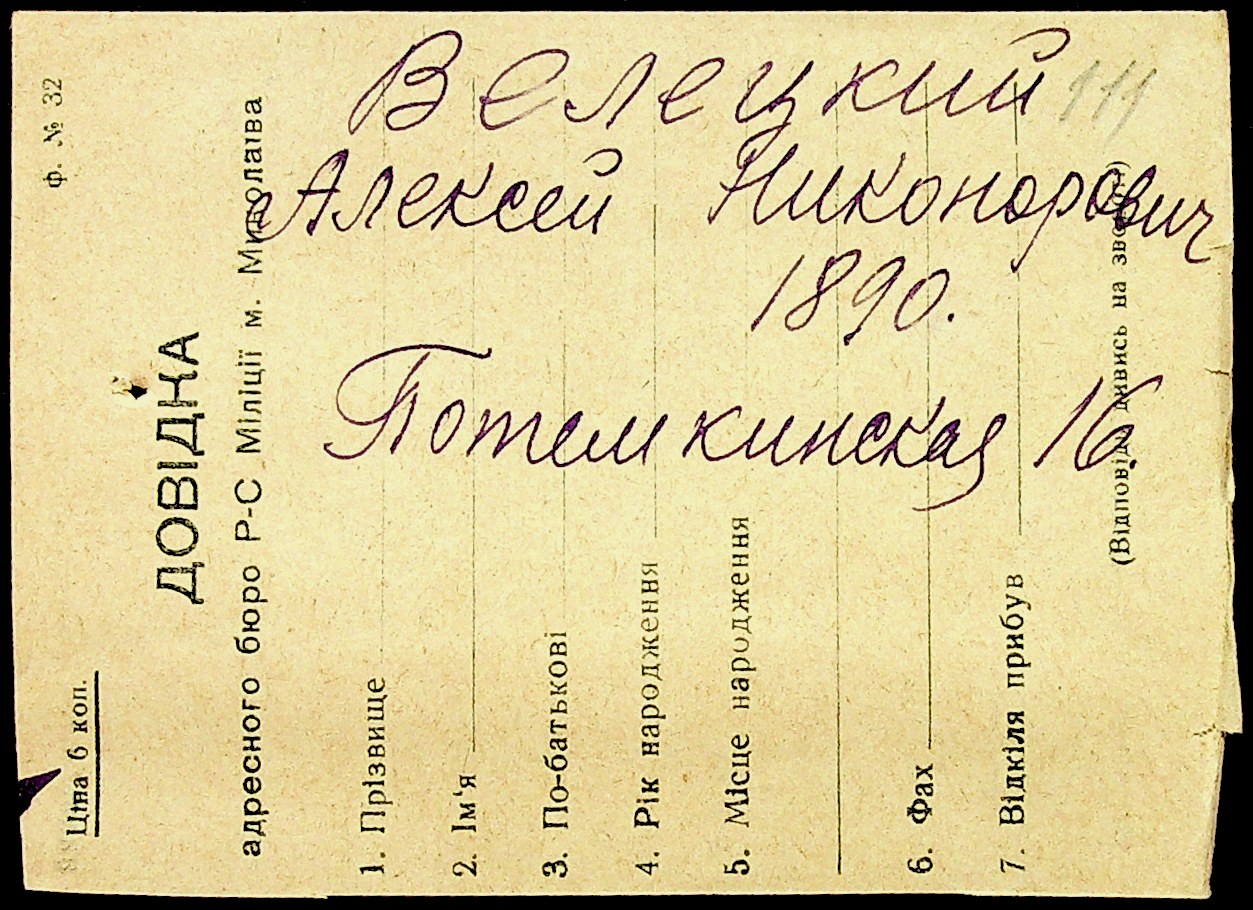 Велецкий 111
Алексей Никонорович
1890.
Потемкинская 16.
ф. № 32
Ціна 6 коп.
ДОВІДКА
адресного бюро Р-С Міліції м. Миколаїва
1. Прізвище
2. Ім'я
3. По-батькові
4. Рік народження
5. Місце народження
6. Фах
7. Відкіля прибув
(Відповідь дивись на звороті)